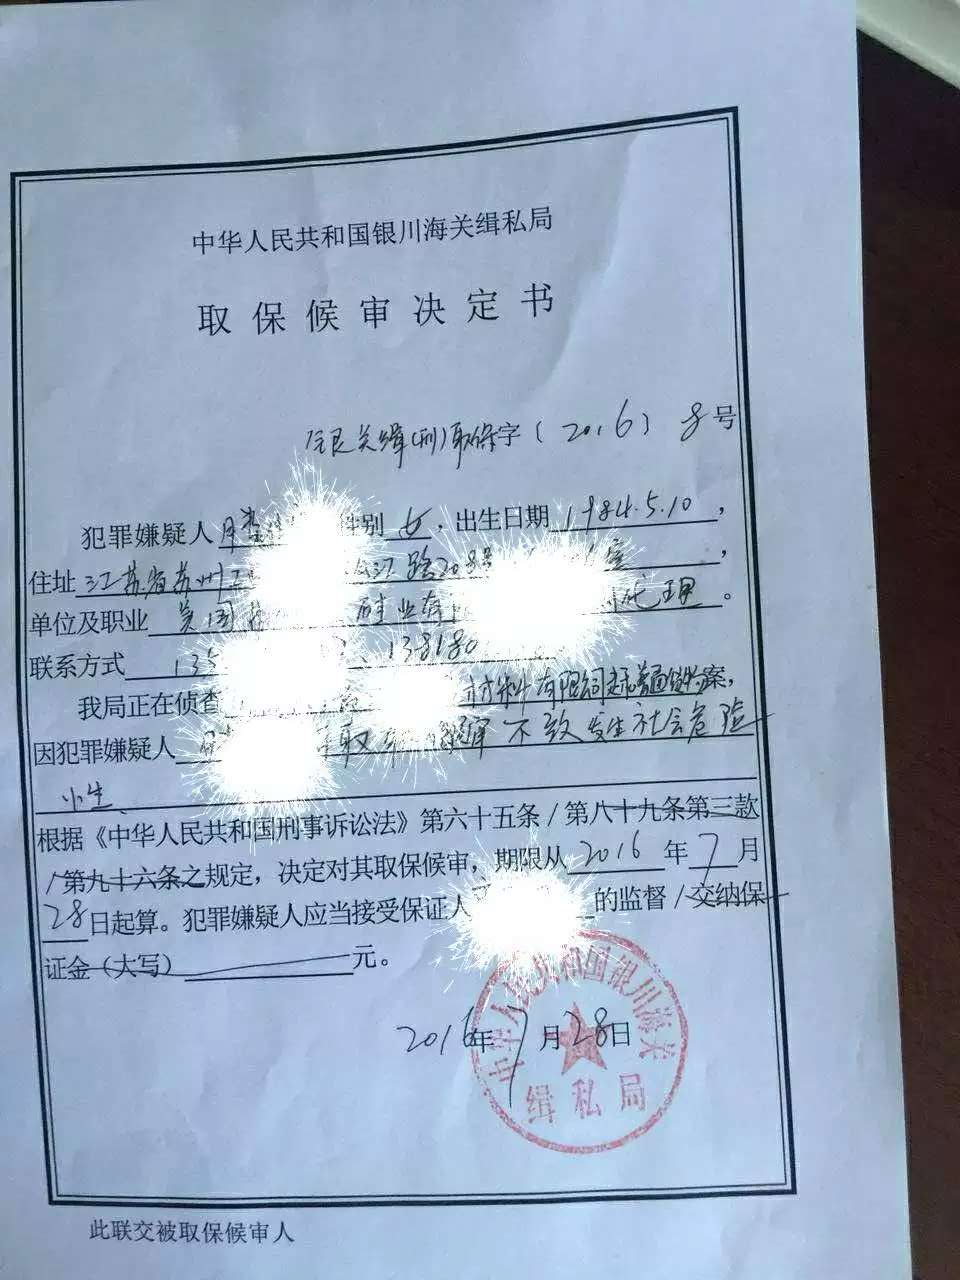 中华人民共和国银川海关缉私局
取保候审决定书
银关缉(刑)取保字(2016)8号
犯罪嫌疑人 性别 女，出生日期 1984.5.10，
住址 江苏省苏州 江路208号 室，
单位及职业 美国 硅业有 代理。
联系方式 135 、138180
我局正在侦查 材料有限公司走私普通货物案，
因犯罪嫌疑人 取保候审不致发生社会危险
性
根据《中华人民共和国刑事诉讼法》第六十五条/第八十九条第三款
/第九十六条之规定，决定对其取保候审，期限从 2016 年 7 月
28日起算。犯罪嫌疑人应当接受保证人 的监督/交纳保
证金（大写） 元。
2016年7月28日
中华人民共和国银川海关
缉私局
此联交被取保候审人